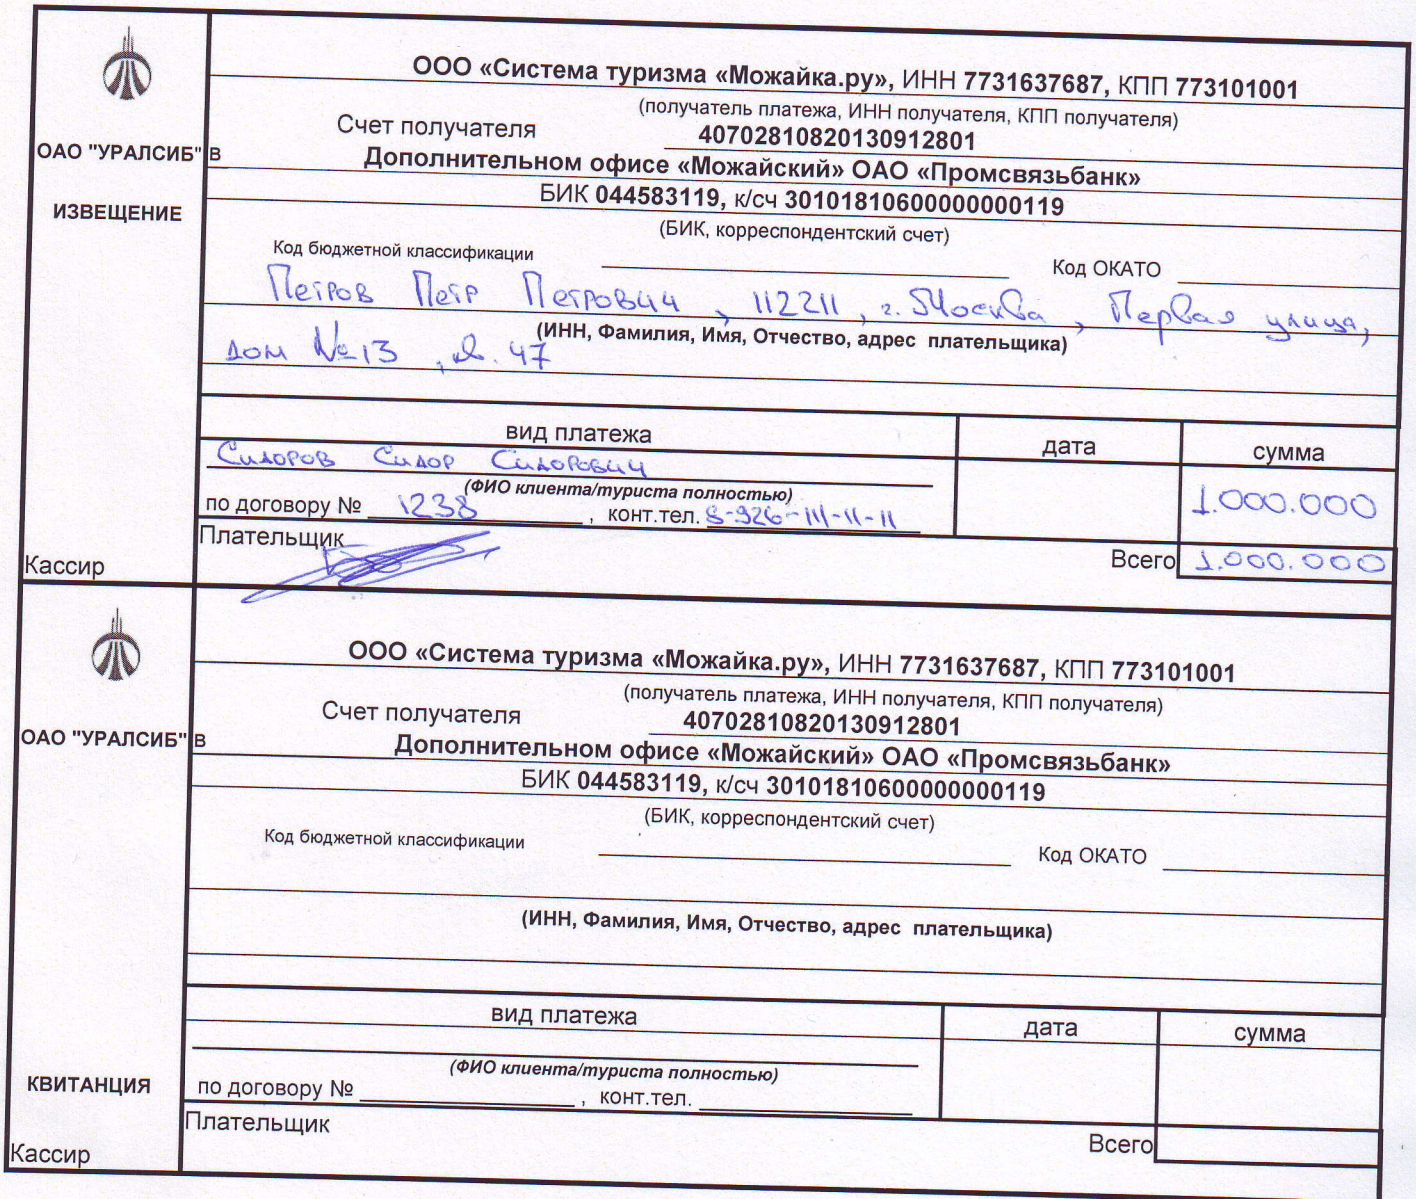 ООО «Система туризма «Можайка.ру», ИНН 7731637687, КПП 773101001
(получатель платежа, ИНН получателя, КПП получателя)
Счет получателя 40702810820130912801
ОАО "УРАЛСИБ" в Дополнительном офисе «Можайский» ОАО «Промсвязьбанк»
БИК 044583119, к/сч 30101810600000000119
ИЗВЕЩЕНИЕ
(БИК, корреспондентский счет)
Код бюджетной классификации Код ОКАТО
Петров Петр Петрович, 112211, г. Москва, Первая улица,
(ИНН, Фамилия, Имя, Отчество, адрес плательщика)
дом №13, кв. 47
вид платежа дата сумма
Сидоров Сидор Сидорович
(ФИО клиента/туриста полностью)
1.000.000
по договору № 1238, конт.тел. 8-926-111-11-11
Плательщик
Кассир Всего 1.000.000
ООО «Система туризма «Можайка.ру», ИНН 7731637687, КПП 773101001
(получатель платежа, ИНН получателя, КПП получателя)
Счет получателя 40702810820130912801
ОАО "УРАЛСИБ" в Дополнительном офисе «Можайский» ОАО «Промсвязьбанк»
БИК 044583119, к/сч 30101810600000000119
(БИК, корреспондентский счет)
Код бюджетной классификации Код ОКАТО
(ИНН, Фамилия, Имя, Отчество, адрес плательщика)
вид платежа дата сумма
(ФИО клиента/туриста полностью)
КВИТАНЦИЯ
по договору № , конт.тел.
Плательщик
Кассир Всего